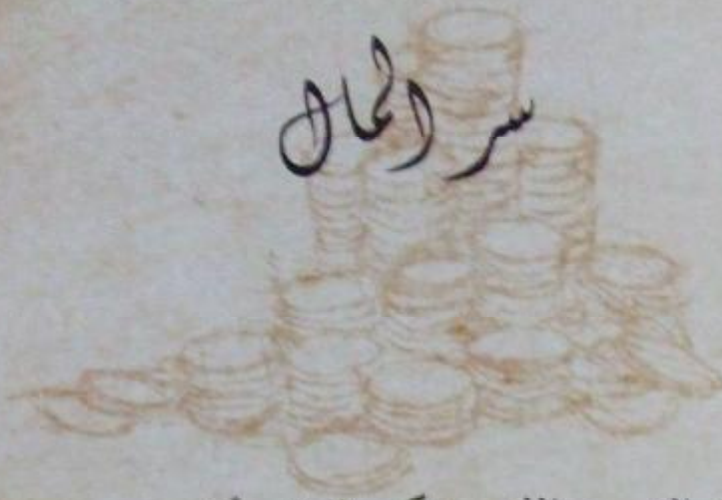 سر المال